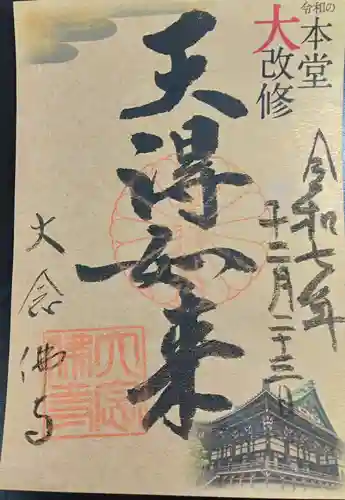 令和の
本堂
大改修
令和七年
十二月二十三日
天得如来
大念佛寺
大念佛寺